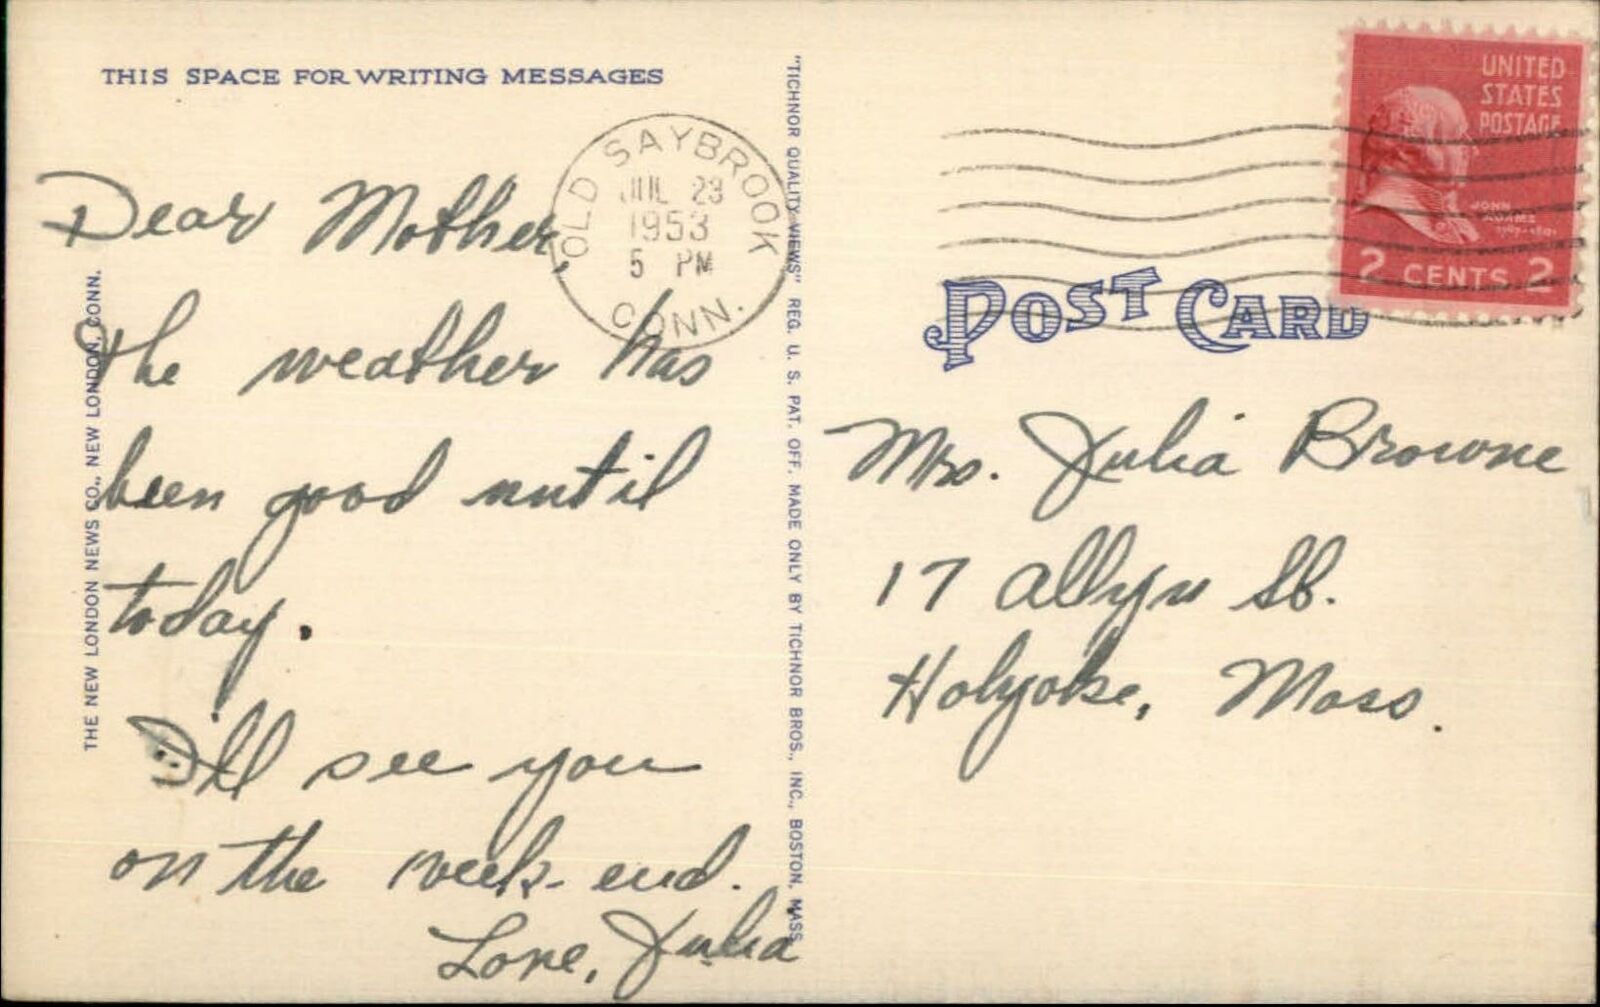 THIS SPACE FOR WRITING MESSAGES
OLD SAYBROOK
JUL 23
1953
5 PM
CONN.
Dear Mother,
the weather has
been good until
today.
I'll see you
on the week-end.
Love, Julia
THE NEW LONDON NEWS CO., NEW LONDON, CONN.
"TICHNOR QUALITY VIEWS" REG. U. S. PAT. OFF. MADE ONLY BY TICHNOR BROS., INC., BOSTON, MASS.
UNITED
STATES
POSTAGE
JOHN
ADAMS
2 CENTS 2
POST CARD
Mrs. Julia Browne
17 Allyn St.
Holyoke, Mass.